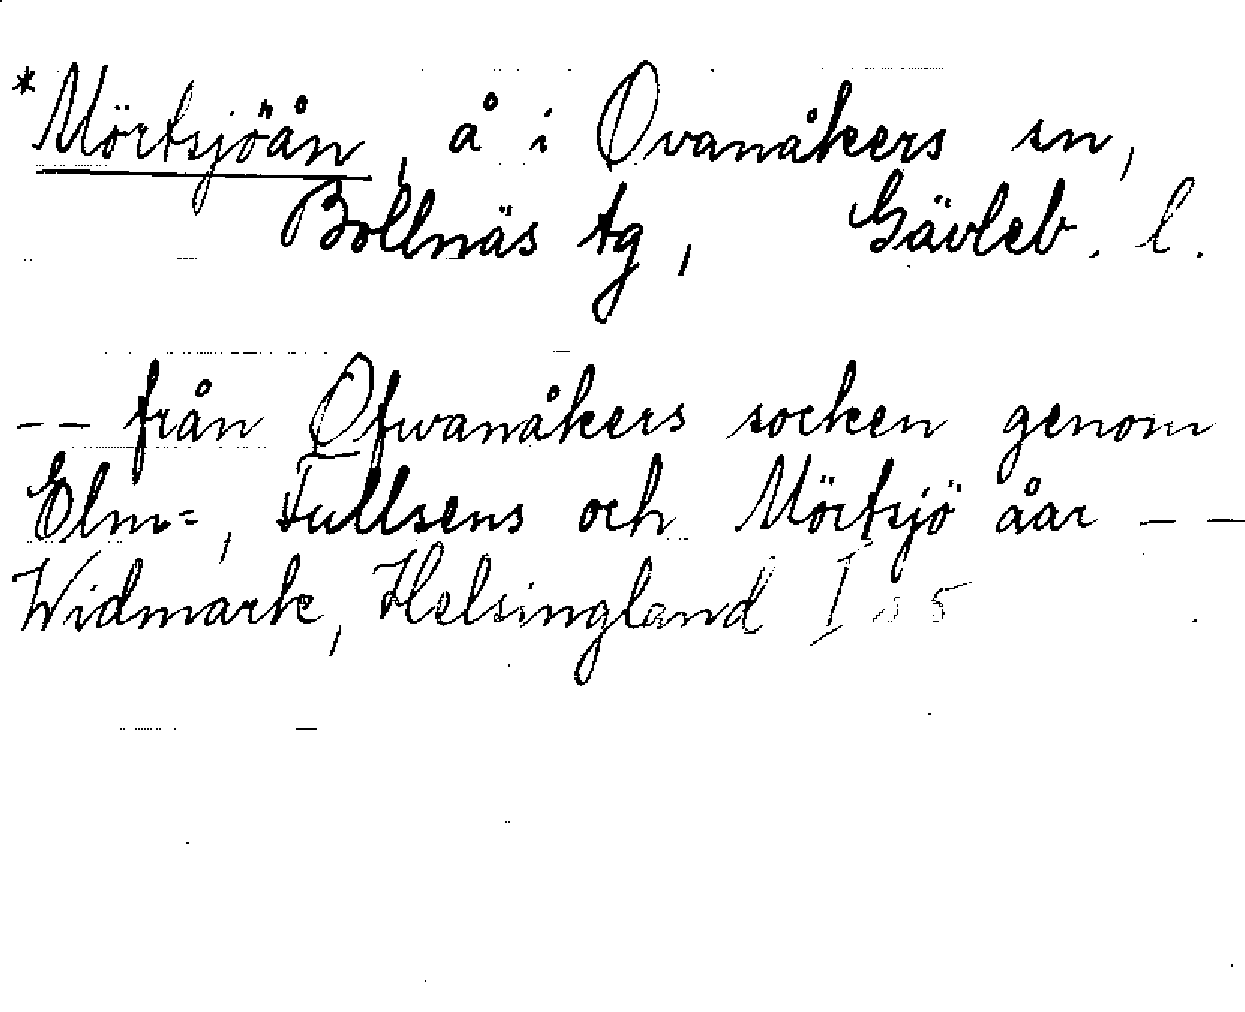 *Mörtsjöån, å i Ovanåkers sn,
Bollnäs tg, Gävleb. l.
-- från Ofwanåkers socken genom
Elm=, Tullsens och Mörtsjö åar --
Widmark, Helsingland I s 5